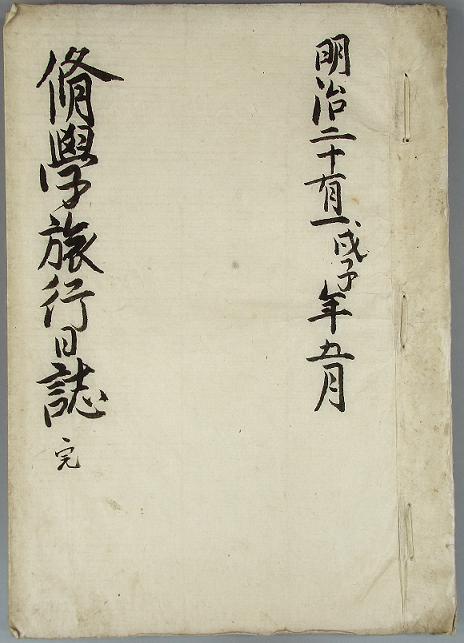 明治二十有一戊子年五月
脩學旅行日誌 完